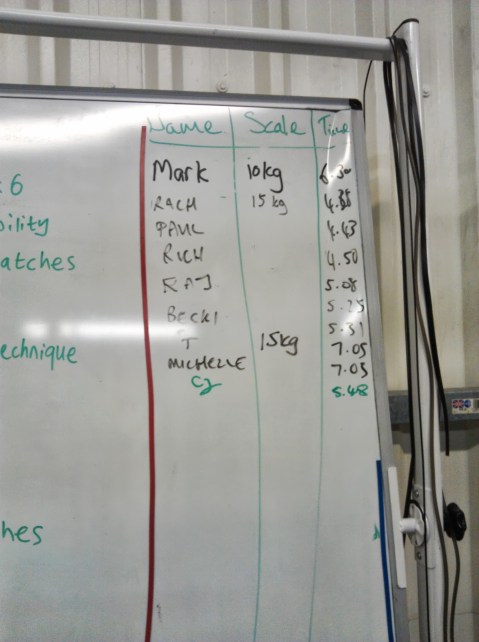 Name Scale Time
Mark 10kg
RACH 15kg 4.38
PAUL 4.43
RICH 4.50
RAJ 5.08
BECKI 5.25
T 15kg 5.31
MICHELLE 7.05
7.05
CJ 5.48
6
bility
atches
echnique
hes